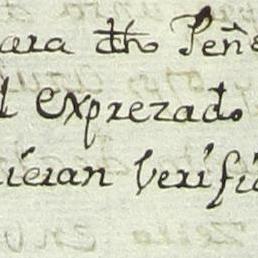 ara dho Peñ
l exprezado
ieran Verifi